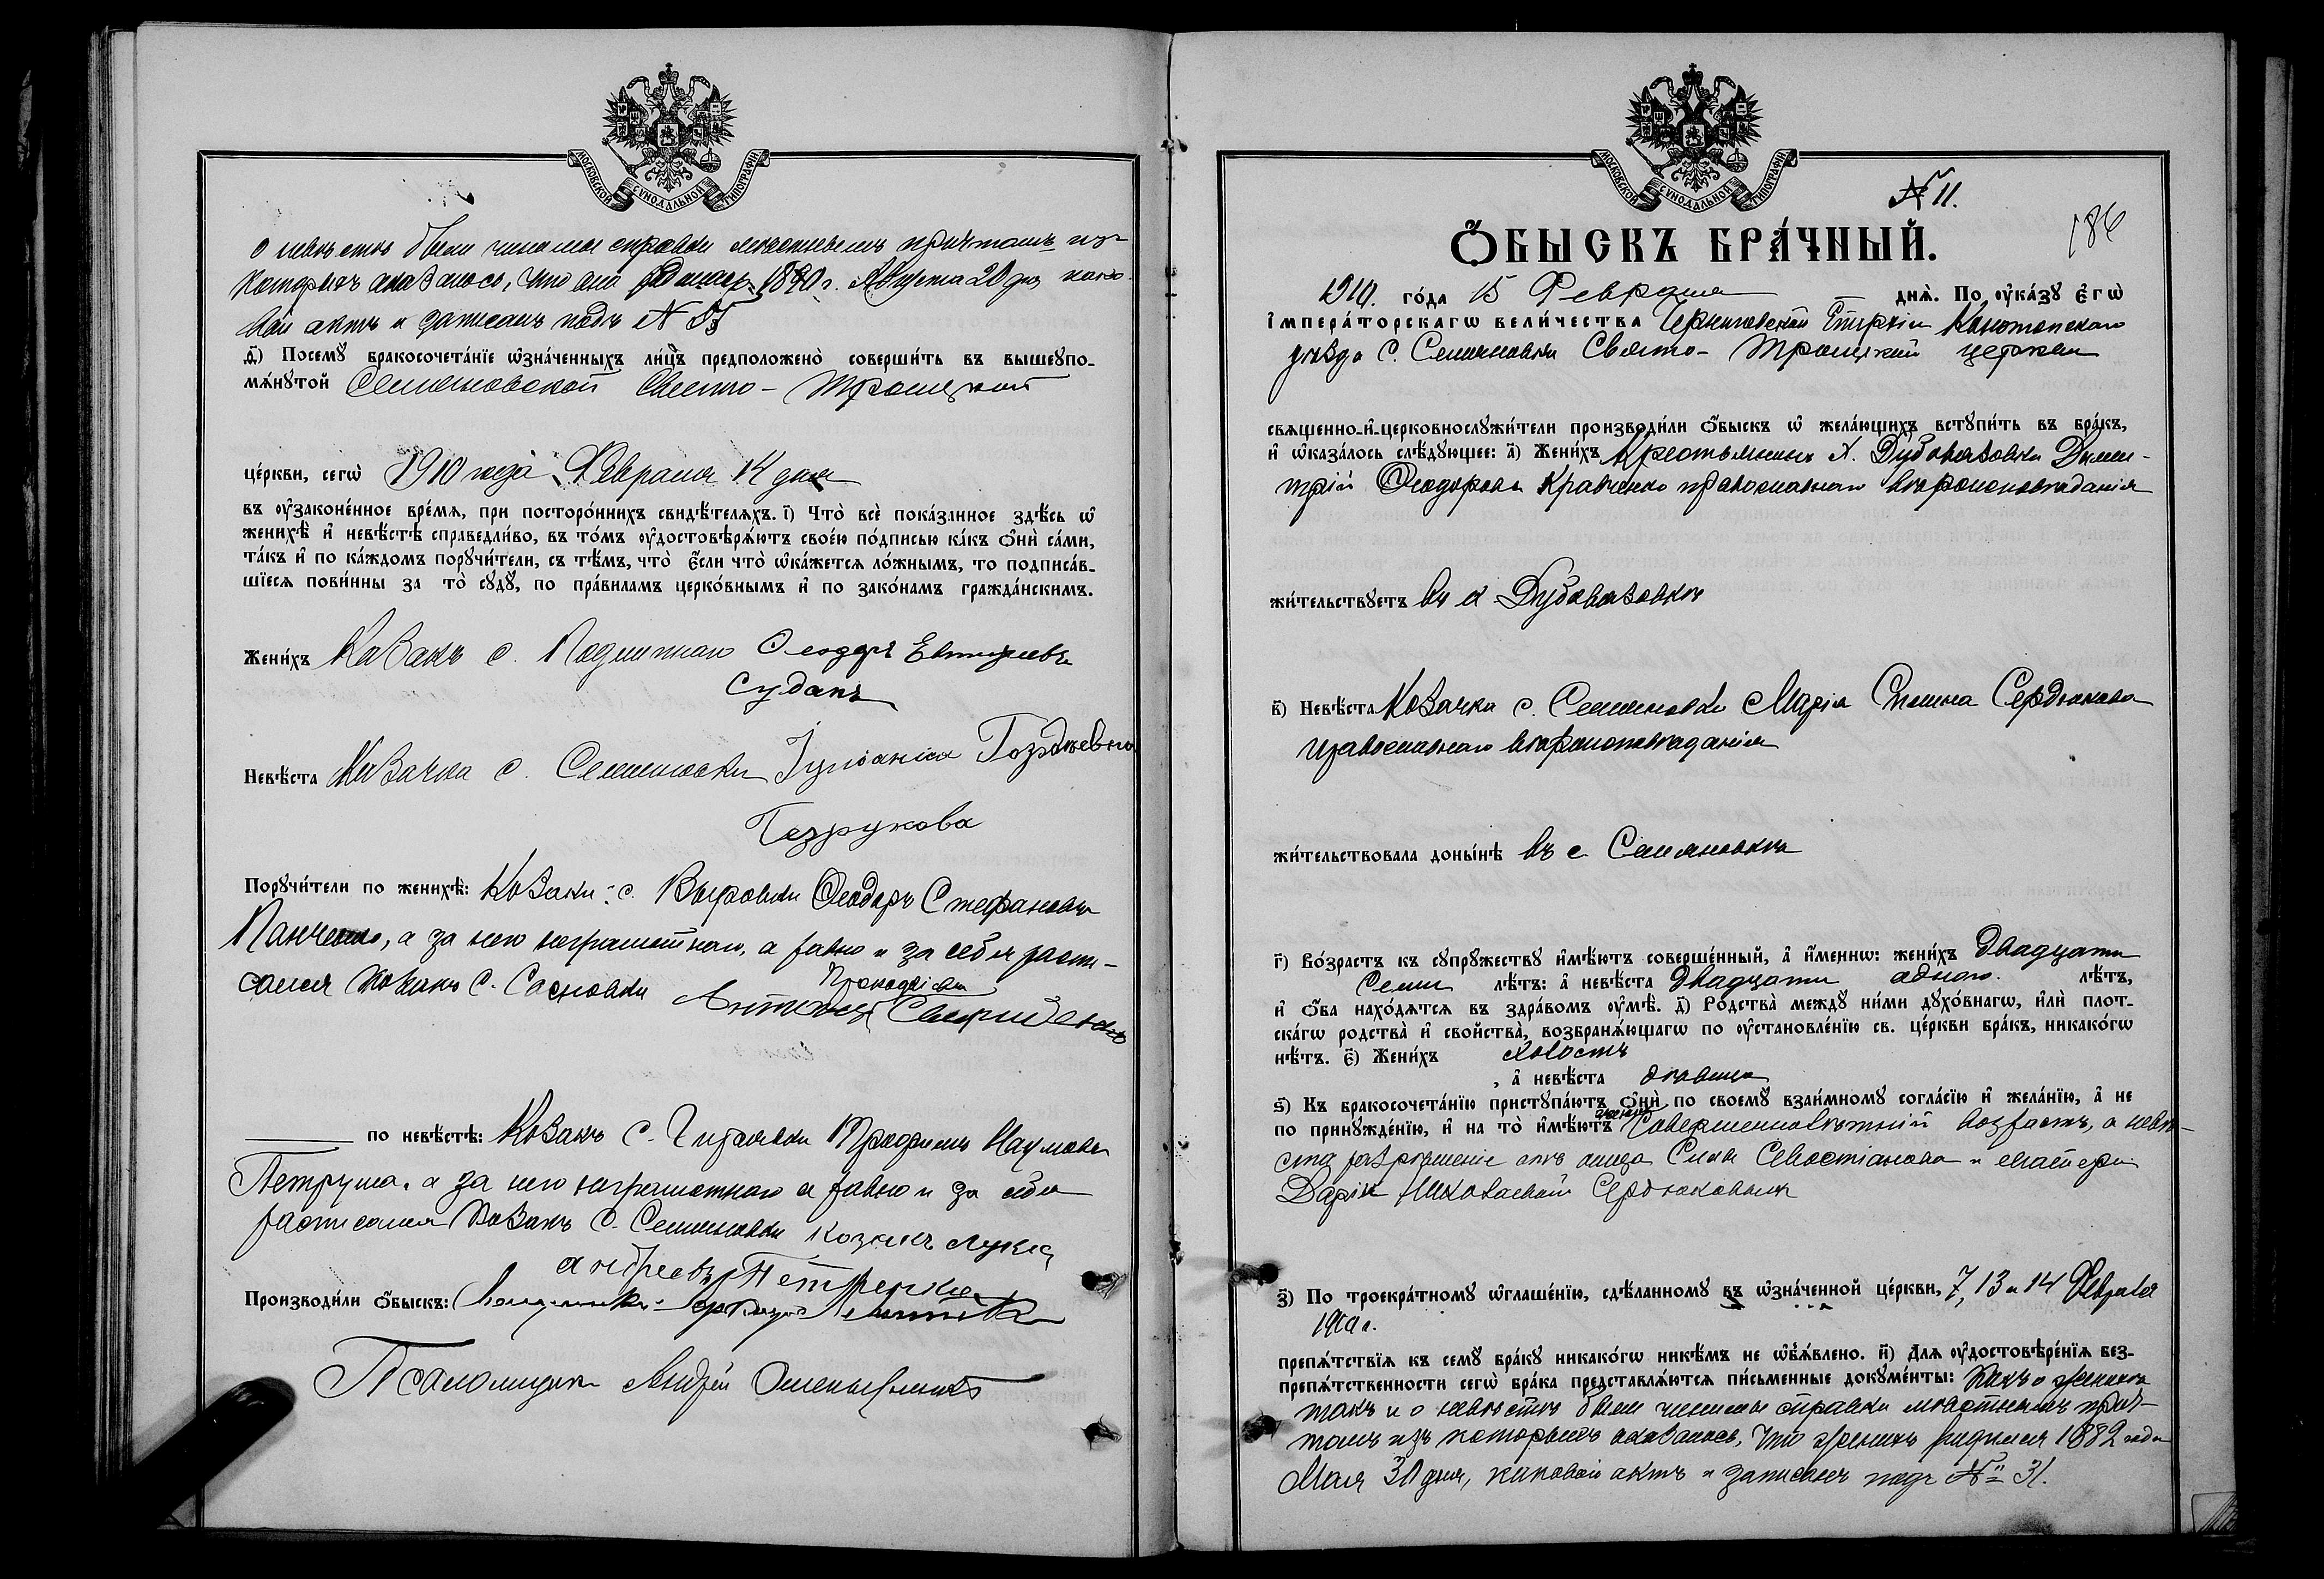 МОСКОВСКОЙ СѴНОДАЛЬНОЙ ТИПОГРАФІИ
о невѣстѣ были чинимы справки мѣстнымъ причтомъ изъ
которыхъ оказалось, что она родилась 1890 г. Августа 20 дня како-
вой актъ и записанъ подъ №
ѳ҃) Посемꙋ̀ бракосочета́нїе ѡ҆зна́ченныхъ ли́цъ предположено̀ соверши́ть въ вышеꙋпо-
мѧ́нꙋтой Семяновской Свято-Троицкой
це́ркви, сегѡ̀ 1910 года Февраля 14 дня
въ ᲂу҆законе́нное вре́мѧ, при посторо́ннихъ свидѣ́телѧхъ. і҃) Что̀ всѐ пока́занное здѣ́сь ѡ҆
женихѣ̀ и҆ невѣ́стѣ справедли́во, въ то́мъ ᲂу҆достовѣрѧ́ютъ свое́ю по́дписью ка́къ ѻ҆нѝ са́ми,
та́къ и҆ по ка́ждомъ порꙋчи́тели, съ тѣ́мъ, что̀ є҆́сли что̀ ѡ҆ка́жетсѧ ло́жнымъ, то подписа́в-
шїесѧ пови́нны за то̀ сꙋдꙋ̀, по пра́виламъ церко́внымъ и҆ по зако́намъ гражда́нскимъ.
Жени́хъ Казакъ с. Подлипнаго Ѳеодоръ Евтихіевъ
Суданъ
Невѣ́ста Казачка с. Семяновки Іуліанія
Безрукова
Порꙋчи́тели по женихѣ̀: Козаки: с. Выровки Ѳеодоръ Стефановъ
Панченко, а за него неграмотнаго, а равно и за себя распи-
сался Козакъ с. Сосновки Прокофіевъ
Антоній Свириденко
по невѣ́стѣ: Козакъ с. Гиравки Трофимъ Наумовъ
Петруша, а за него неграмотнаго а равно и за себя
расписался Козакъ с. Семяновки козакъ Лука
Андреевъ Петренко
Производи́ли ѻ҆́быскъ: Священникъ
Псаломщикъ Андрей
МОСКОВСКОЙ СѴНОДАЛЬНОЙ ТИПОГРАФІИ
№ 11.
186
Ѻ҆БЫСКЪ БРА́ЧНЫЙ.
1910. го́да 15 Февраля днѧ̀. По ᲂу҆ка́зꙋ є҆гѡ̀
и҆мпера́торскагѡ вели́чества Черниговской Епархіи Конотопскаго
уѣзда с. Семяновки Свято-Троицкой церкви
свѧщенно-и҆-церковнослꙋжи́тели производи́ли ѻ҆́быскъ ѡ҆ жела́ющихъ встꙋпи́ть въ бра́къ,
и҆ ѡ҆каза́лось слѣ́дꙋющее: а҃) Жени́хъ Крестьянинъ х. Дубовязовки Дими-
трій Ѳеодоровъ Кравченко православнаго вѣроисповѣданія
жи́тельствꙋетъ въ х. Дубовязовкѣ
в҃) Невѣ́ста Козачка с. Семяновки Марія Силина Сердюкова
православнаго вѣроисповѣданія
жи́тельствовала доны́нѣ въ с. Семяновкѣ
г҃) Во́зрастъ къ сꙋпрꙋ́жествꙋ и҆мѣ́ютъ соверше́нный, а҆ и҆́менно: жени́хъ двадцати
семи лѣ́тъ: а҆ невѣ́ста двадцати одного. лѣ́тъ,
и҆ ѻ҆́ба нахо́дѧтсѧ въ здра́вомъ ᲂу҆мѣ̀. д҃) Родства̀ междꙋ̀ ни́ми дꙋхо́внагѡ, и҆лѝ плот-
ска́гѡ родства̀ и҆ свойства̀, возбранѧ́ющагѡ по ᲂу҆становле́нїю св. це́ркви бра́къ, никако́гѡ
нѣ́тъ. є҃) Жени́хъ холостъ
, а҆ невѣ́ста дѣвица
ѕ҃) Къ бракосочета́нїю пристꙋпа́ютъ ѻ҆нѝ по своемꙋ̀ взаи́мномꙋ согла́сїю и҆ жела́нїю, а҆ не
по принꙋжде́нїю, и҆ на то̀ и҆мѣ́ютъ женихъ совершеннолѣтній возрастъ, а невѣ-
ста разрѣшеніе отъ отца Силы Севостіанова и матери
Даріи Николаевой Сердюковыхъ
з҃) По троекра́тномꙋ ѡ҆глаше́нїю, сдѣ́ланномꙋ въ ѡ҆зна́ченной це́ркви, 7, 13 и 14 Февраля
1910 г.
препѧ́тствїѧ къ семꙋ̀ бра́кꙋ никако́гѡ никѣ́мъ не ѡ҆б̾ѧ́влено. и҃) Длѧ ᲂу҆достовѣре́нїѧ без-
препѧ́тственности сегѡ̀ бра́ка представлѧ́ютсѧ пи́сьменные докꙋме́нты: Какъ о женихѣ
такъ и о невѣстѣ были чинимы справки мѣстнымъ прич-
томъ изъ которыхъ оказалось, что женихъ родился 1882 года
Мая 30 дня, каковой актъ и записанъ подъ № 31.